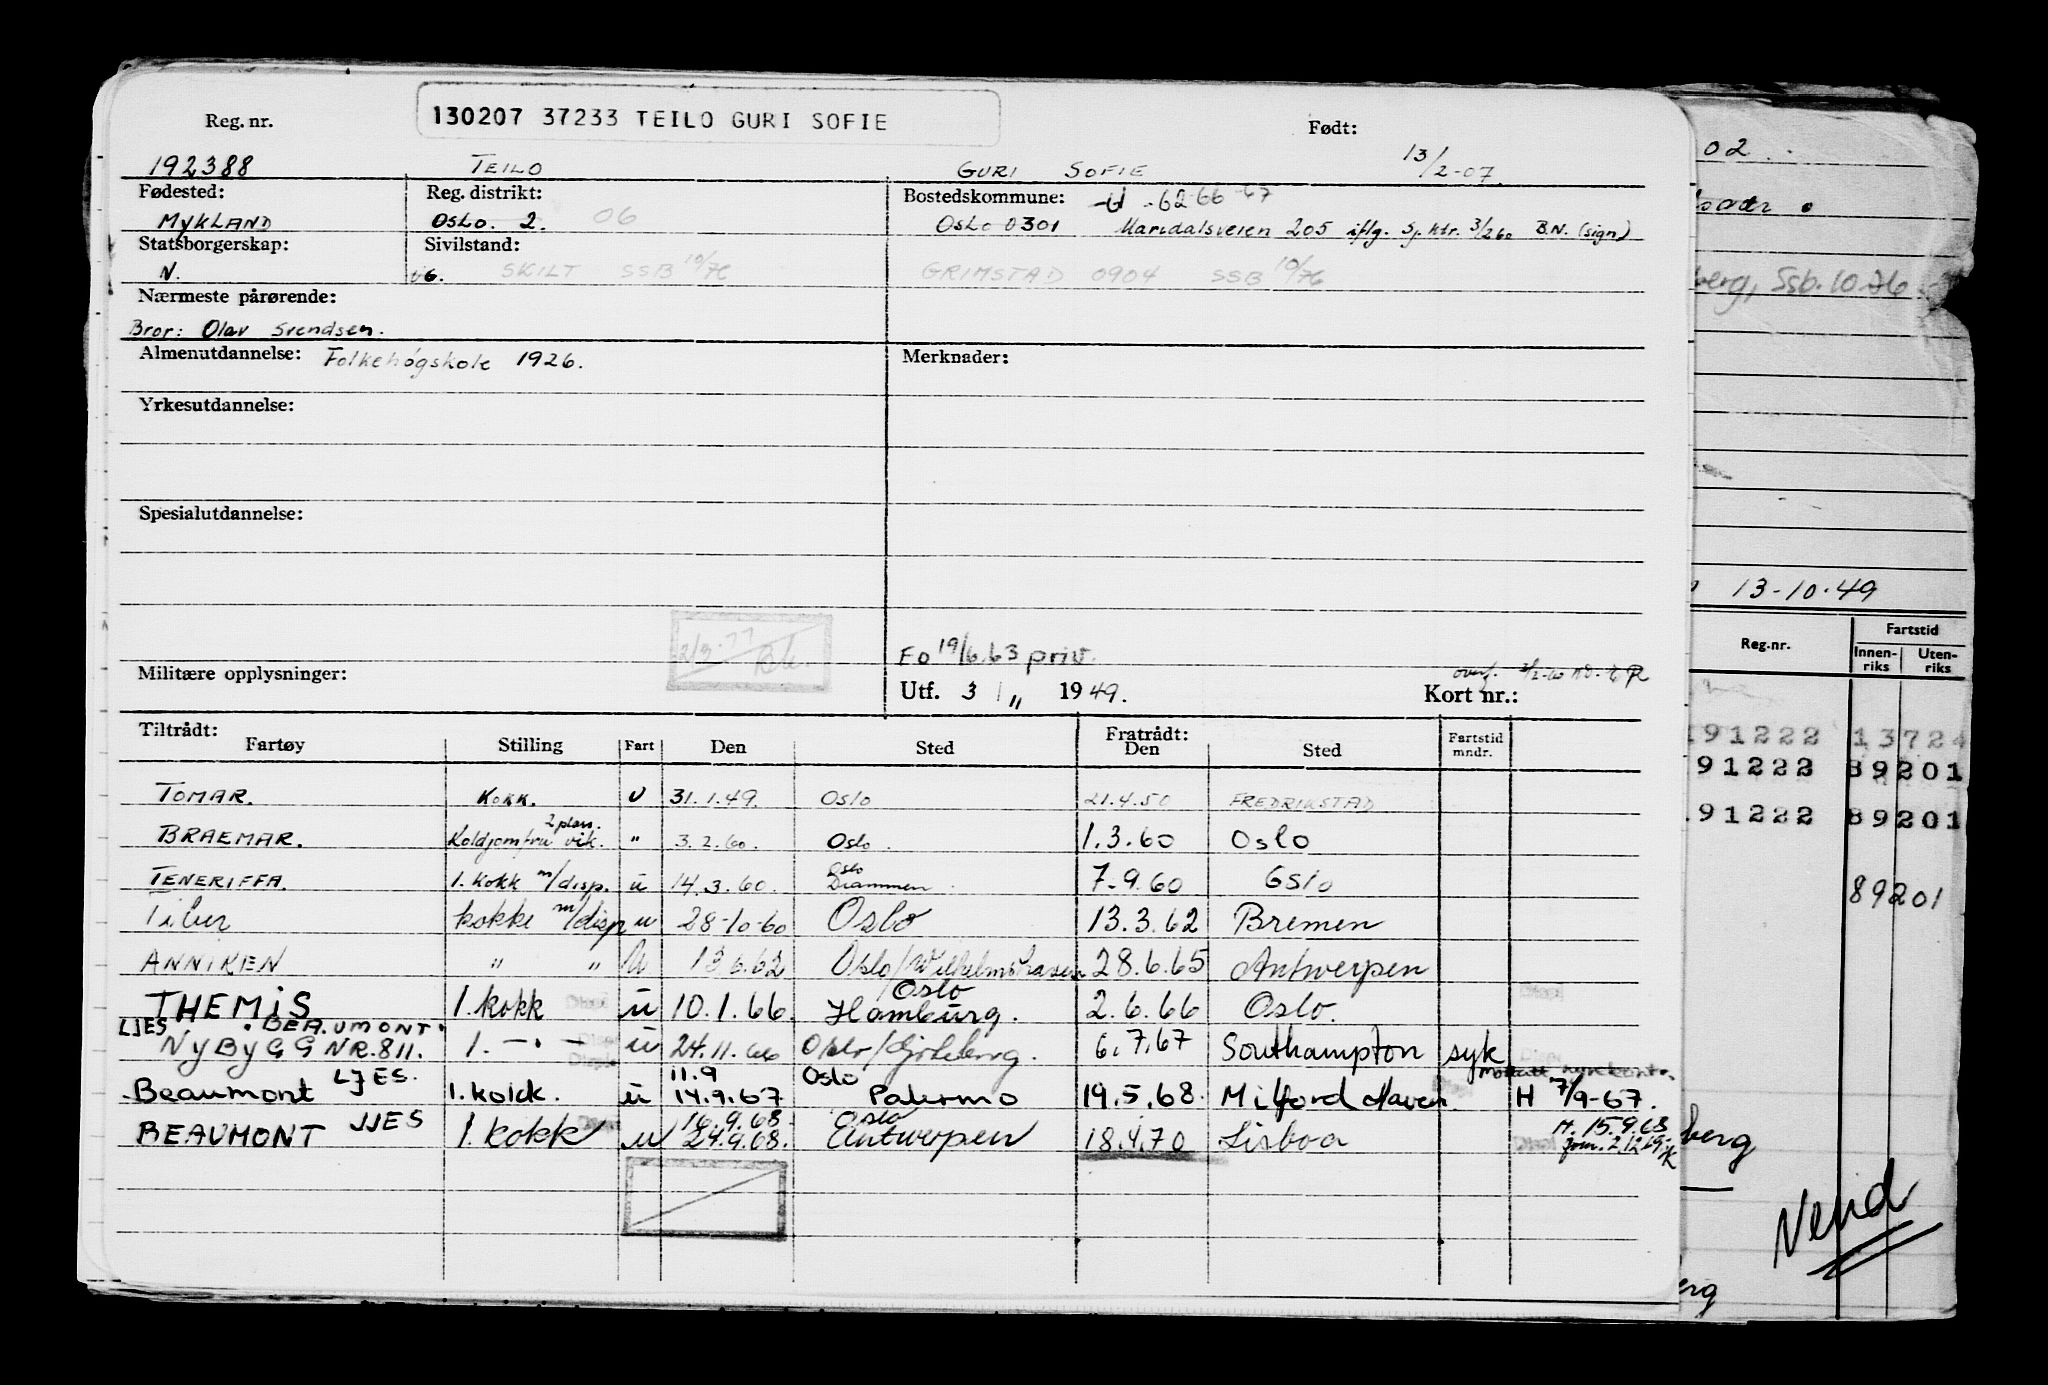 Reg. nr.
130207 37233 TEILO GURI SOFIE
Født:
192388 TEILO GURI SOFIE 13/2-07.
Fødested: Reg. distrikt: Bostedskommune: U -62-66-67
MYKLAND OSLO. 2. 06 OSLO 0301 Maridalsveien 205 iflg. Sj. ktr. 3/2 60 B.N. (sign)
Statsborgerskap: Sivilstand:
N. UG. SKILT SSB 10/76 GRIMSTAD 0904 SSB 10/76
Nærmeste pårørende:
Bror: Olav Svendsen.
Almenutdannelse: Folkehögskole 1926. Merknader:
Yrkesutdannelse:
Spesialutdannelse:
2/3-77
Fo 19/6.63 priv.
Militære opplysninger: Utf. 3 1 " 1949. Kort nr.:
Tiltrådt: Fratrådt:
Fartøy Stilling Fart Den Sted Den Sted Fartstid mndr.
TOMAR. KOKK. U 31.1.49. OSLO 21.4.50 FREDRIKSTAD
2 plass.
BRAEMAR. Koldjomfru vik. " 3.2.60. Oslo. 1.3.60 Oslo
Oslo
TENERIFFA. 1. kokk m/disp. u 14.3.60. Drammen. 7.9.60 Oslo
Tiber kokke m/disp u 28-10-60 Oslo 13.3.62 Bremen
ANNIKEN " " U 13.6.62 Oslo/Wilhelmshaven 28.6.65 Antwerpen
Oslo
THEMIS 1. kokk u 10.1.66. Hamburg. 2.6.66 Oslo.
LJES "BEAUMONT"
NYBYGG NR. 811. 1. -"- u 24.11.66 Oslo/Göteborg. 6.7.67 Southampton syk
11.9 Oslo
Beaumont LJES. 1. kokk. u 14.9.67 Palermo 19.5.68. Milford Haven. H 7/9-67.
16.9.68 Oslo M. 15.9.68
BEAUMONT JJES 1. kokk u 24.9.68. Antwerpen 18.4.70 Lisboa
02
berg, Ssb. 10.76
13-10-49
Reg.nr. Fartstid
Innen-riks Uten-riks
191222 13724
91222 89201
191222 89201
89201
berg
Vend
erg